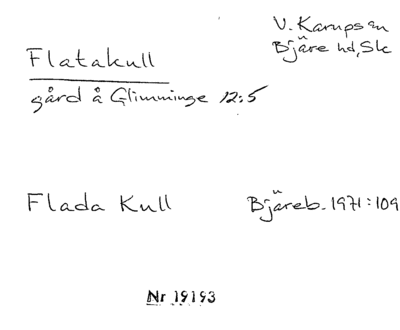 V. Karups sn
Bjäre hd, Sk
Flatakull
gård å Glimminge 12:5
Flada Kull
Bjäreb. 1971:109
Nr 19193